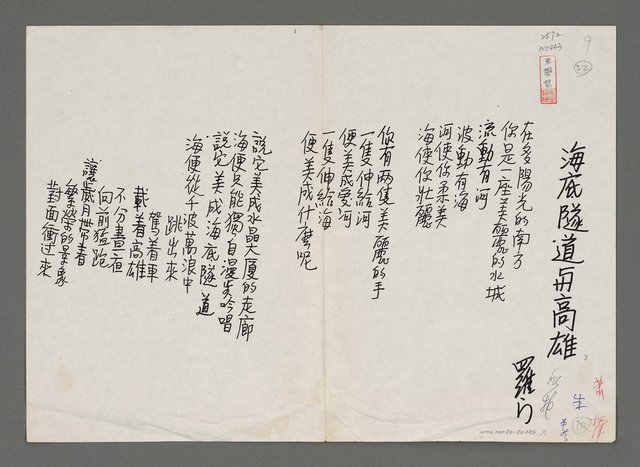 海底隧道与高雄
羅门
在多陽光的南方
你是一座美麗的水城
流動有河
波動有海
河使你柔美
海使你壯麗
你有兩隻美麗的手
一隻伸給河
便美成愛河
一隻伸給海
便美成什麼呢
說它美成水晶大厦的走廊
海便只能獨自漫步吟唱
說它美成海底隧道
海便從千波萬浪中
跳出來
駕着車
載着高雄
不分晝夜
向前猛跑
讓歲月帶着
繁榮的景象
對面衝过來
2572
N0853
9
22
朱